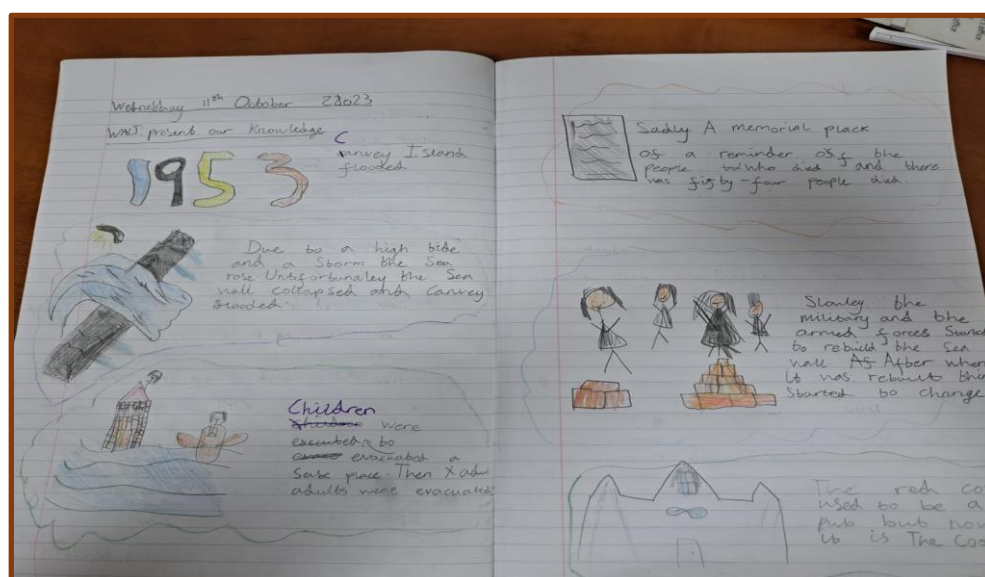 Wednesday 11th October 2023
WALT: present our Knowledge
1953
Canvey Island
flooded
Due to a high tide
and a Storm the Sea
rose Unfortunaley the Sea
wall collapsed and Canvey
flooded.
Children
were
to
evacuated a
Safe place. Then
adults were evacuated
Sadly A memorial plack
of a reminder of the
people who died and there
was fifty-four people died.
Slowley the
military and the
armed forces Started
to rebuild the Sea
wall After when
it was rebuilt
Started to change
The red
used to be a
pub but now
it is The